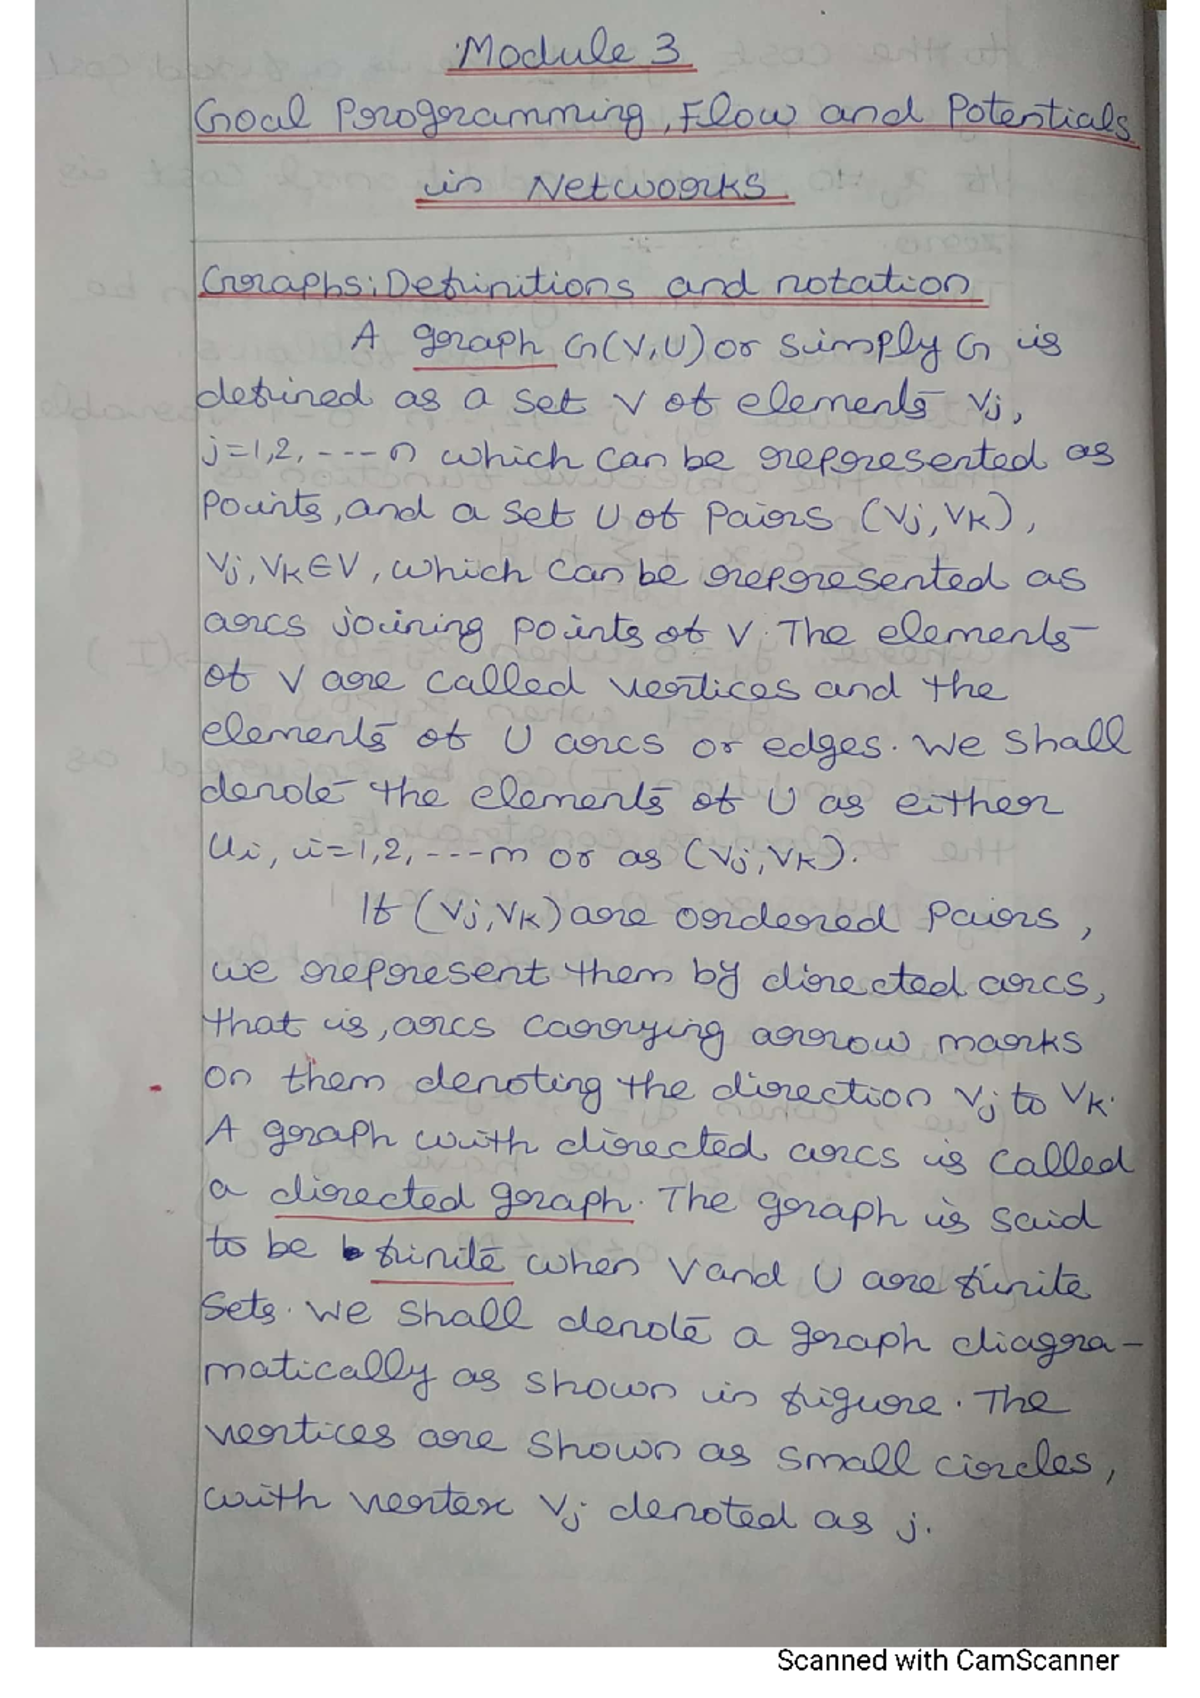 Module 3
Goal Programming, Flow and Potentials
in Networks.
Graphs: Definitions and notation
A graph G(V,U) or simply G is
defined as a set V of elements Vj,
j=1,2, ---- n which can be represented as
points, and a set U of pairs (Vj,VK),
Vj,VK∈V, which can be represented as
arcs joining points of V. The elements
of V are called vertices and the
elements of U arcs or edges. We shall
denote the elements of U as either
Ui, i=1,2, ---- m or as (Vj,VK).
If (Vj,VK) are ordered pairs,
we represent them by directed arcs,
that is, arcs carrying arrow marks
on them denoting the direction Vj to VK.
A graph with directed arcs is called
a directed graph. The graph is said
to be finite when V and U are finite
sets. We shall denote a graph diagra-
matically as shown in figure. The
vertices are shown as small circles,
with vertex Vj denoted as j.
Scanned with CamScanner